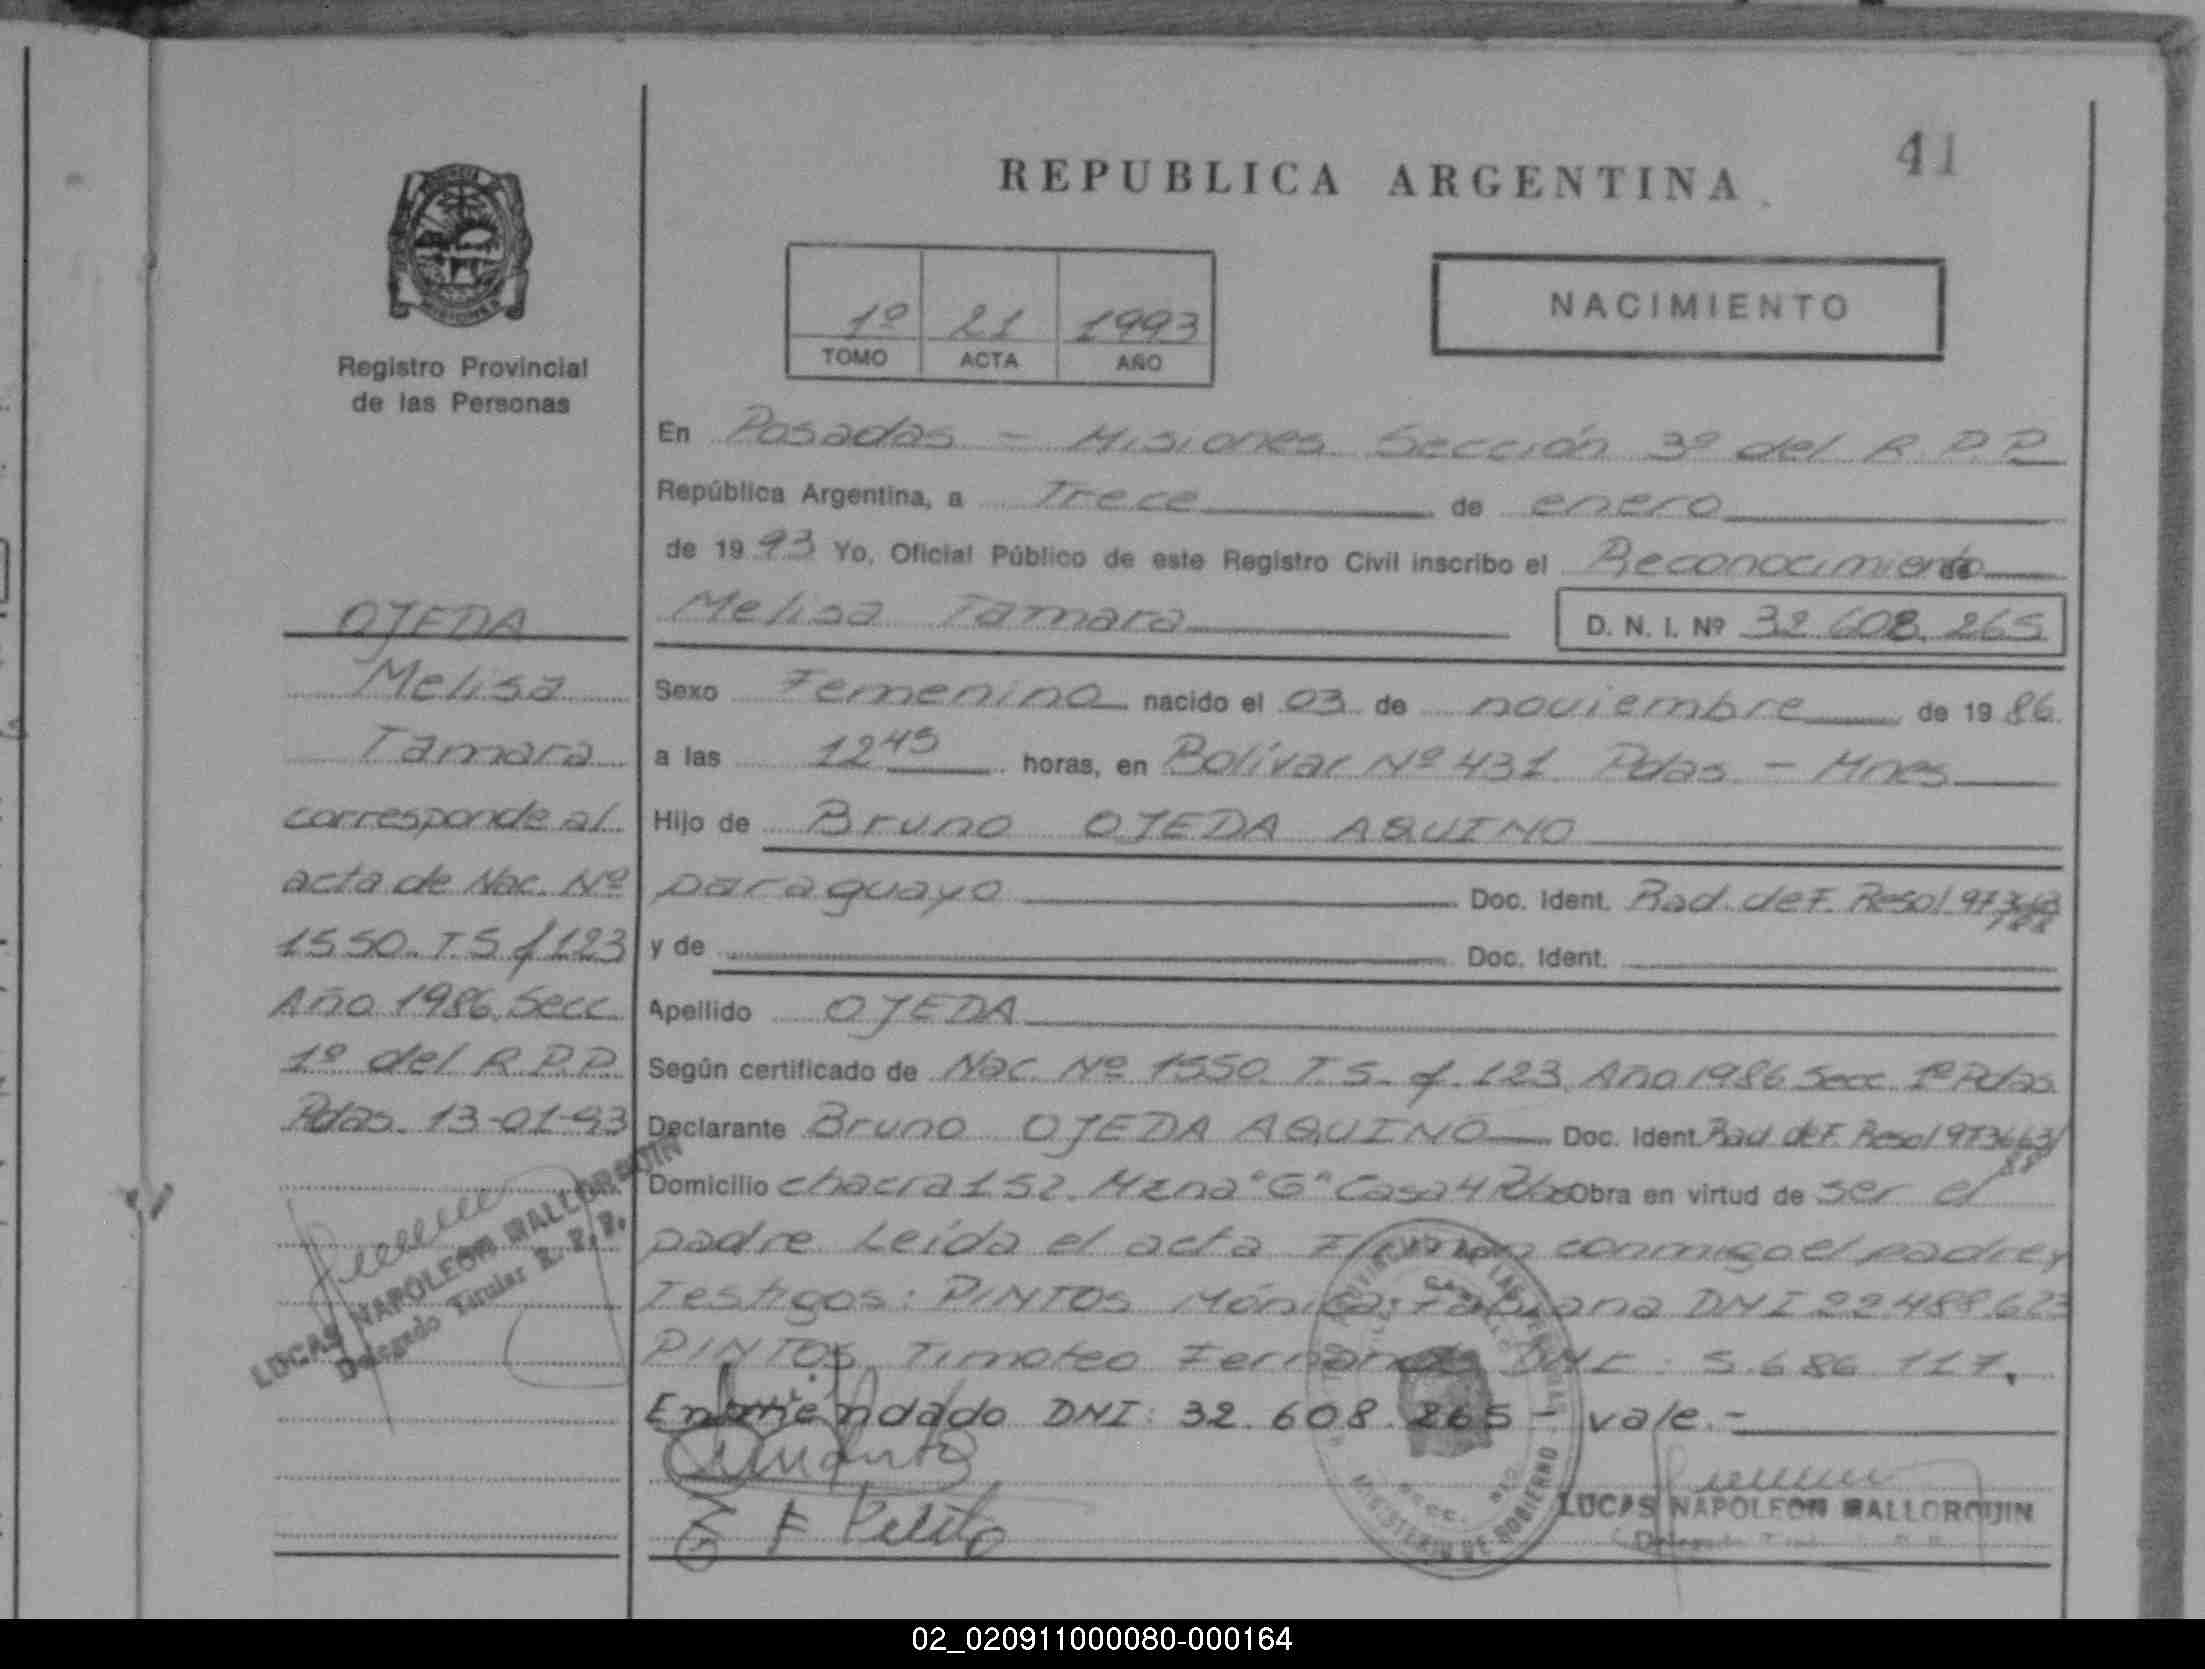 41
REPUBLICA ARGENTINA
1º 21 1993
TOMO ACTA AÑO
NACIMIENTO
Registro Provincial
de las Personas
OJEDA
Melisa
Tamara
corresponde al
acta de Nac. Nº
1550. T.5 f 123
Año 1986. Secc.
1º del R.P.P.
Pdas. 13-01-93
LUCAS NAPOLEON MALLORQUIN
Delegado Titular R. P. P.
En Posadas - Misiones Sección 3º del R.P.P.
República Argentina, a Trece de enero
de 1993 Yo, Oficial Público de este Registro Civil inscribo el Reconocimiento de
Melisa Tamara D. N. I. Nº 32.608.265
Sexo Femenino nacido el 03 de noviembre de 1986.
a las 12 45 horas, en Bolívar Nº 431 Pdas. - Mnes
Hijo de Bruno OJEDA AQUINO
paraguayo Doc. Ident. Rad. de F. Resol
y de Doc. Ident.
Apellido OJEDA
Según certificado de Nac. Nº 1550. T.5. f. 123. Año 1986 Secc. 1º Pdas.
Declarante Bruno OJEDA AQUINO Doc. Ident. Rad. de F. Resol
Domicilio chacra 152. Mzna "G" Casa 4 Pdas Obra en virtud de ser el
padre Leída el acta Firman conmigo el padre y
Testigos: PINTOS Mónica Fabiana DNI 22.488.623
PINTOS, Timoteo Fernando DNI: 5.686.117.
Enmendado DNI: 32.608.265 - vale.-
REGISTRO PROVINCIAL DE LAS PERSONAS
MINISTERIO DE GOBIERNO
LUCAS NAPOLEON MALLORQUIN
02_020911000080-000164